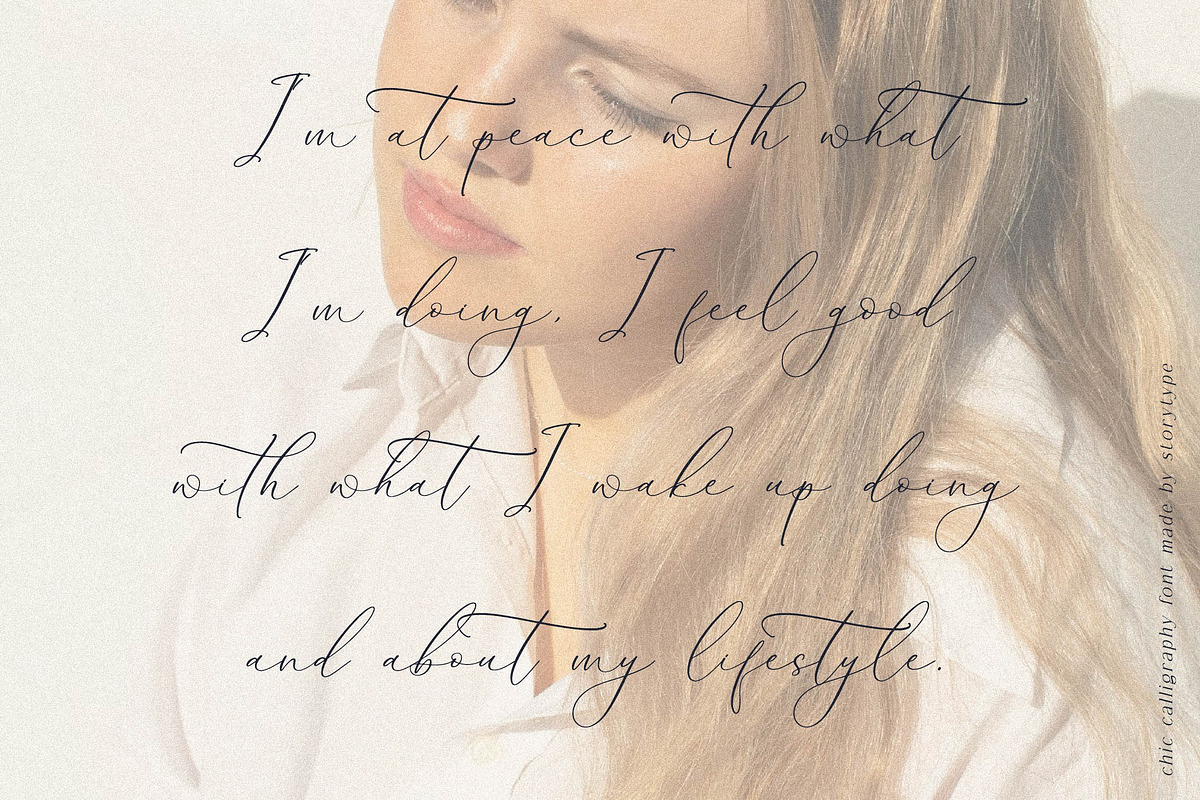 I'm at peace with what
I'm doing. I feel good
with what I wake up doing
and about my lifestyle.
chic calligraphy font made by storytype